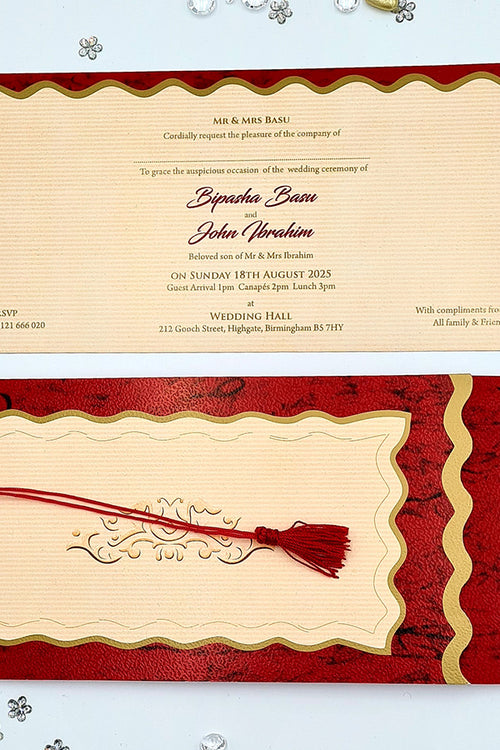 Mr & Mrs Basu
Cordially request the pleasure of the company of
To grace the auspicious occasion of the wedding ceremony of
Bipasha Basu
and
John Ibrahim
Beloved son of Mr & Mrs Ibrahim
on Sunday 18th August 2025
Guest Arrival 1pm Canapés 2pm Lunch 3pm
at
Wedding Hall
212 Gooch Street, Highgate, Birmingham B5 7HY
RSVP
121 666 020
With compliments from
All family & Friend